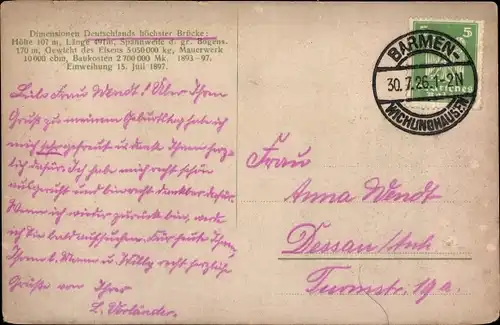 Dimensionen Deutschlands höchster Brücke:
Höhe 107 m, Länge 491 m, Spannweite d. gr. Bogens
170 m, Gewicht des Eisens 5 050 000 kg, Mauerwerk
10 000 cbm, Baukosten 2 700 000 Mk. 1893-97.
Einweihung 15. Juli 1897.
Liebe Frau Wendt! Über Ihren
Gruß zu meinem Geburtstag hab ich
mich sehr gefreut u. danke Ihnen herz-
lich dafür. Ich habe mich recht schön
ausgeruht und bin recht dankbar dafür.
Wenn ich wieder zurück bin, werde
ich Sie bald aufsuchen. Für heute Ihnen,
Ihrem l. Mann u. Willy recht herzliche
Grüße von Ihrer
L. Vorländer.
BARMEN-
30.7.26.1-2N
WICHLINGHAUSEN
5
Frau
Anna Wendt
Dessau/Anh.
Turmstr. 19a.